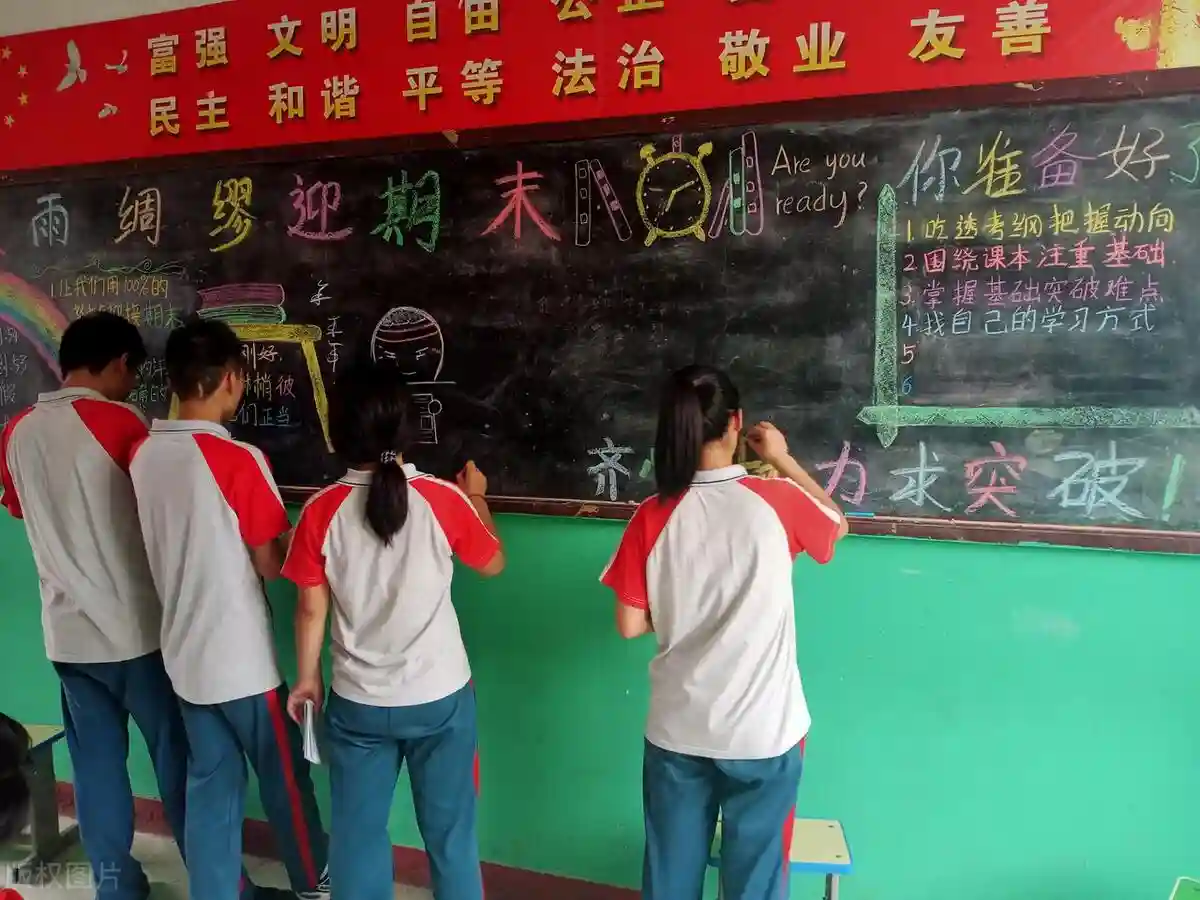 富强 文明 自由 公正
民主 和谐 平等 法治 敬业 友善
雨绸缪迎期末
Are you
ready?
你准备好了
1.吃透考纲把握动向
2.围绕课本注重基础
3.掌握基础突破难点
4.找自己的学习方式
5
6
1.让我们用100%的
期末
刚好,
林梢彼
们正当
齐
力求突破!
版权图片